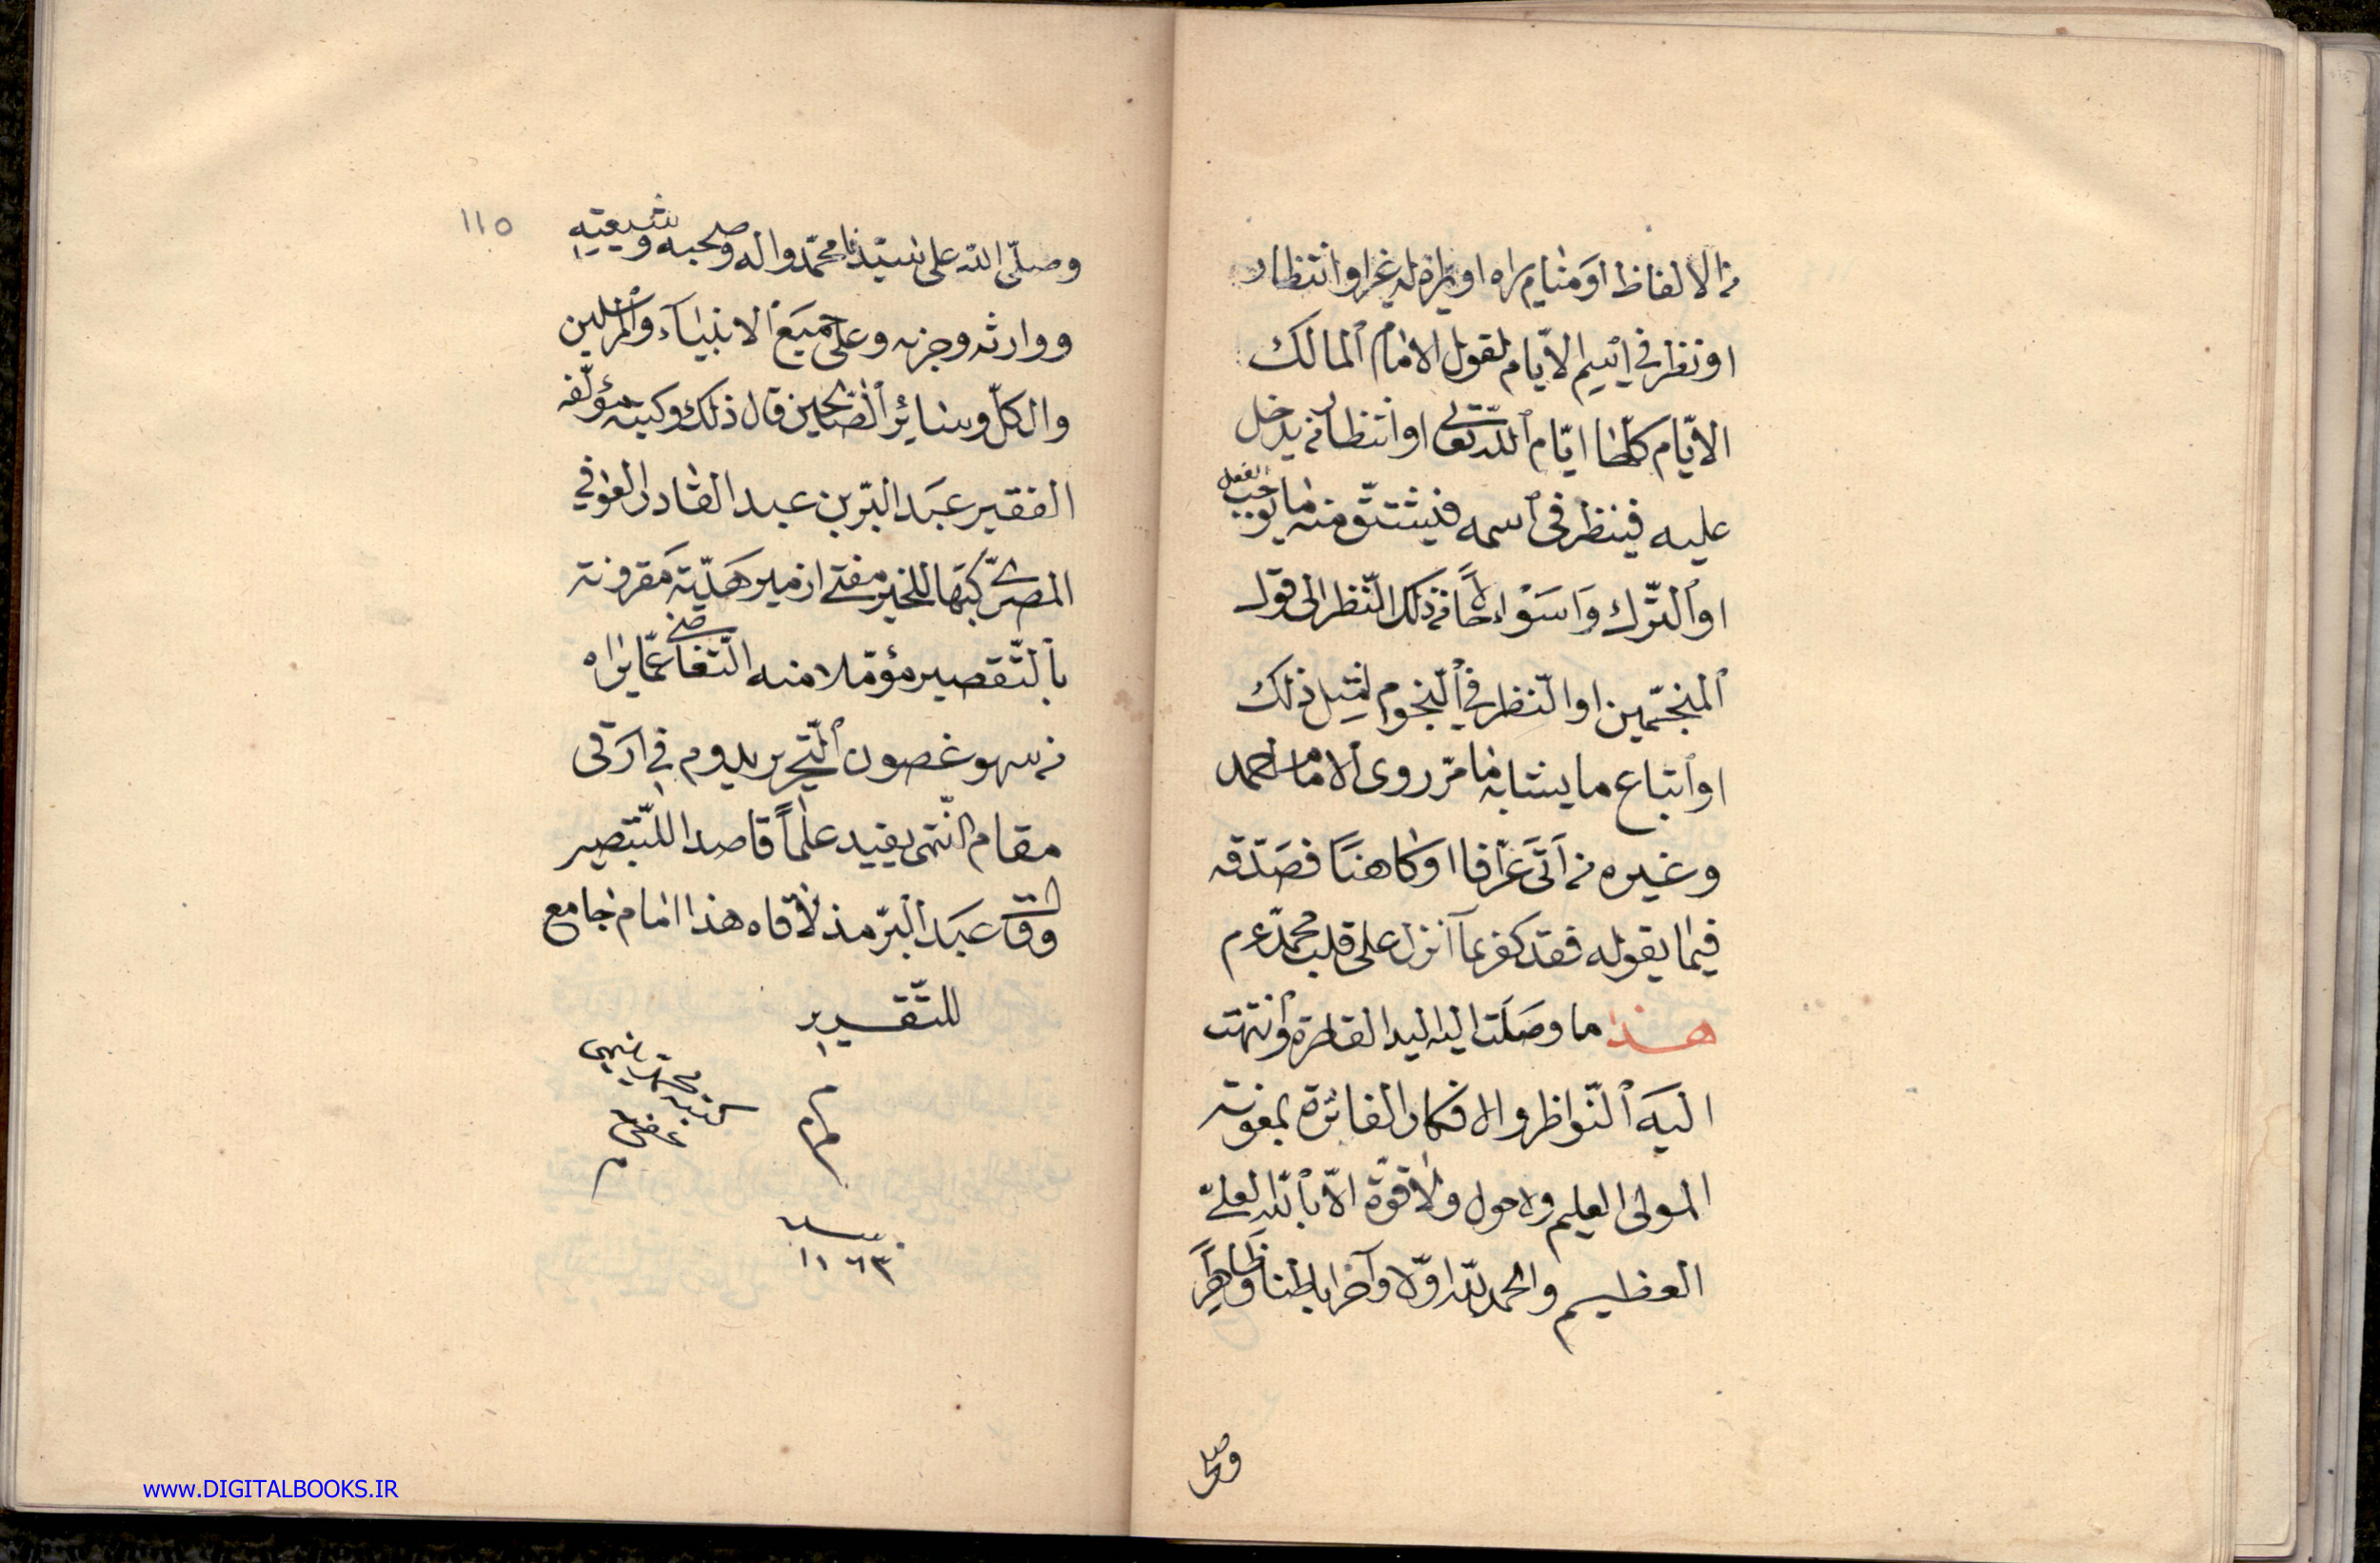 من الالفاظ او منام يراه او يراه له غيرا وانتظار
او نظر في اييم الايام لقول الامام المالك
الايّام كلّها ايّام اللّه تعالى او انتظار من يدخل
عليه فينظر في اسمه فيشتق منه ما يوجب الفعل
او الترك واسواء حالا من ذلك النّظر الى قول
المنجّمين او النّظر في النّجوم لمثل ذلك
او اتباع ما يشابه ما مرّ روى الامام احمد
وغيره من اَتَى عرّافا او كاهنًا فصَدّقه
فيما يقوله فقد كفر بما انزل على قلب محمّد عم
هذا ما وصَلَت اليه اليد القاصرة وانتهت
اليه النّواظر والافكار الفاترة بمعونة
المولى العليم ولا حول ولا قوّة الّا بالله العليّ
العظيم والحمد لله اوّلا وآخرا باطنا وظاهرًا
وصلى
١١٥
وصلّى الله على سيّدنا محمّد واله وصحبه وشيعته
ووارثه وحزبه وعلى جميع الانبياء والمرسلين
وال كلّ وسائر الصّالحين قال ذلك وكتبه مؤلّفه
الفقير عبد البرّ بن عبد القادر العوفي
المصريّ كتبها للخير مفتى ازمير هَديّة مَقرونة
بالتّقصير مؤمّلا منه التّغاضى عمّا يراه
من سهو غصون التّحرير يدوم في ارقى
مقام النّهى يفيد علمًا قاصدا للتّبصير
وقال عبد البرّ مذ لاقاه هذا امام جامع
للتّقرير
تم
كتبه محمد فهمى
عفى عنه
م
سنه
١١٦٣
www.DIGITALBOOKS.IR